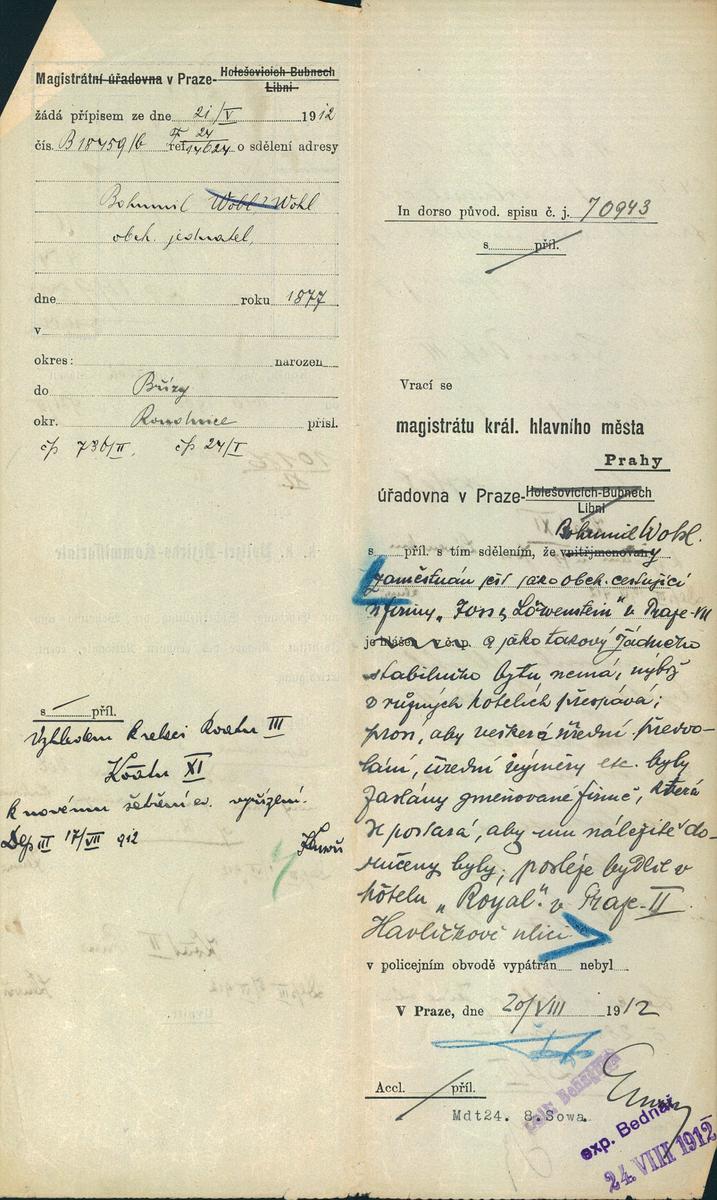 Magistrátní úřadovna v Praze-Holešovicích-Bubnech
Libni
žádá přípisem ze dne 21/V 1912
čís. B 18459/6 ref. 24/14624 o sdělení adresy
Bohumil Wohl
obch. jednatel,
dne roku 1877
v
okres: narozen
do Břízy
okr. Roudnice přísl.
čp 736/II, čp 24/I
s příl.
Vzhledem k relaci Koatu III
Koatu XI
k novému šetření ev. vyřízení.
Dep III 17/VII 912
In dorso původ. spisu č. j. 70943
s příl.
Vrací se
magistrátu král. hlavního města
Prahy
úřadovna v Praze-Holešovicích-Bubnech
Libni
Bohumil Wohl.
s příl. s tím sdělením, že vpitřjmenovaný
zaměstnán jest jako obch. cestující
u firmy „Löwenstein" v Praze-VII
je hlášen v čp. a jako takový žádného
stabilního bytu nemá, nýbrž
v různých hotelích přespává;
prosí, aby veškerá úřední předvo-
lání, úřední výměry etc. byly
zaslány jmenované firmě, která
se postará, aby mu náležitě do-
ručeny byly; posléze bydlil v
hôtelu „Royal" v Praze-II
Havlíčkově ulici
v policejním obvodě vypátrán nebyl
V Praze, dne 20/VIII 1912
Accl. příl.
Mdt24. 8.Sowa.
exp. Bednář
24. VIII 1912